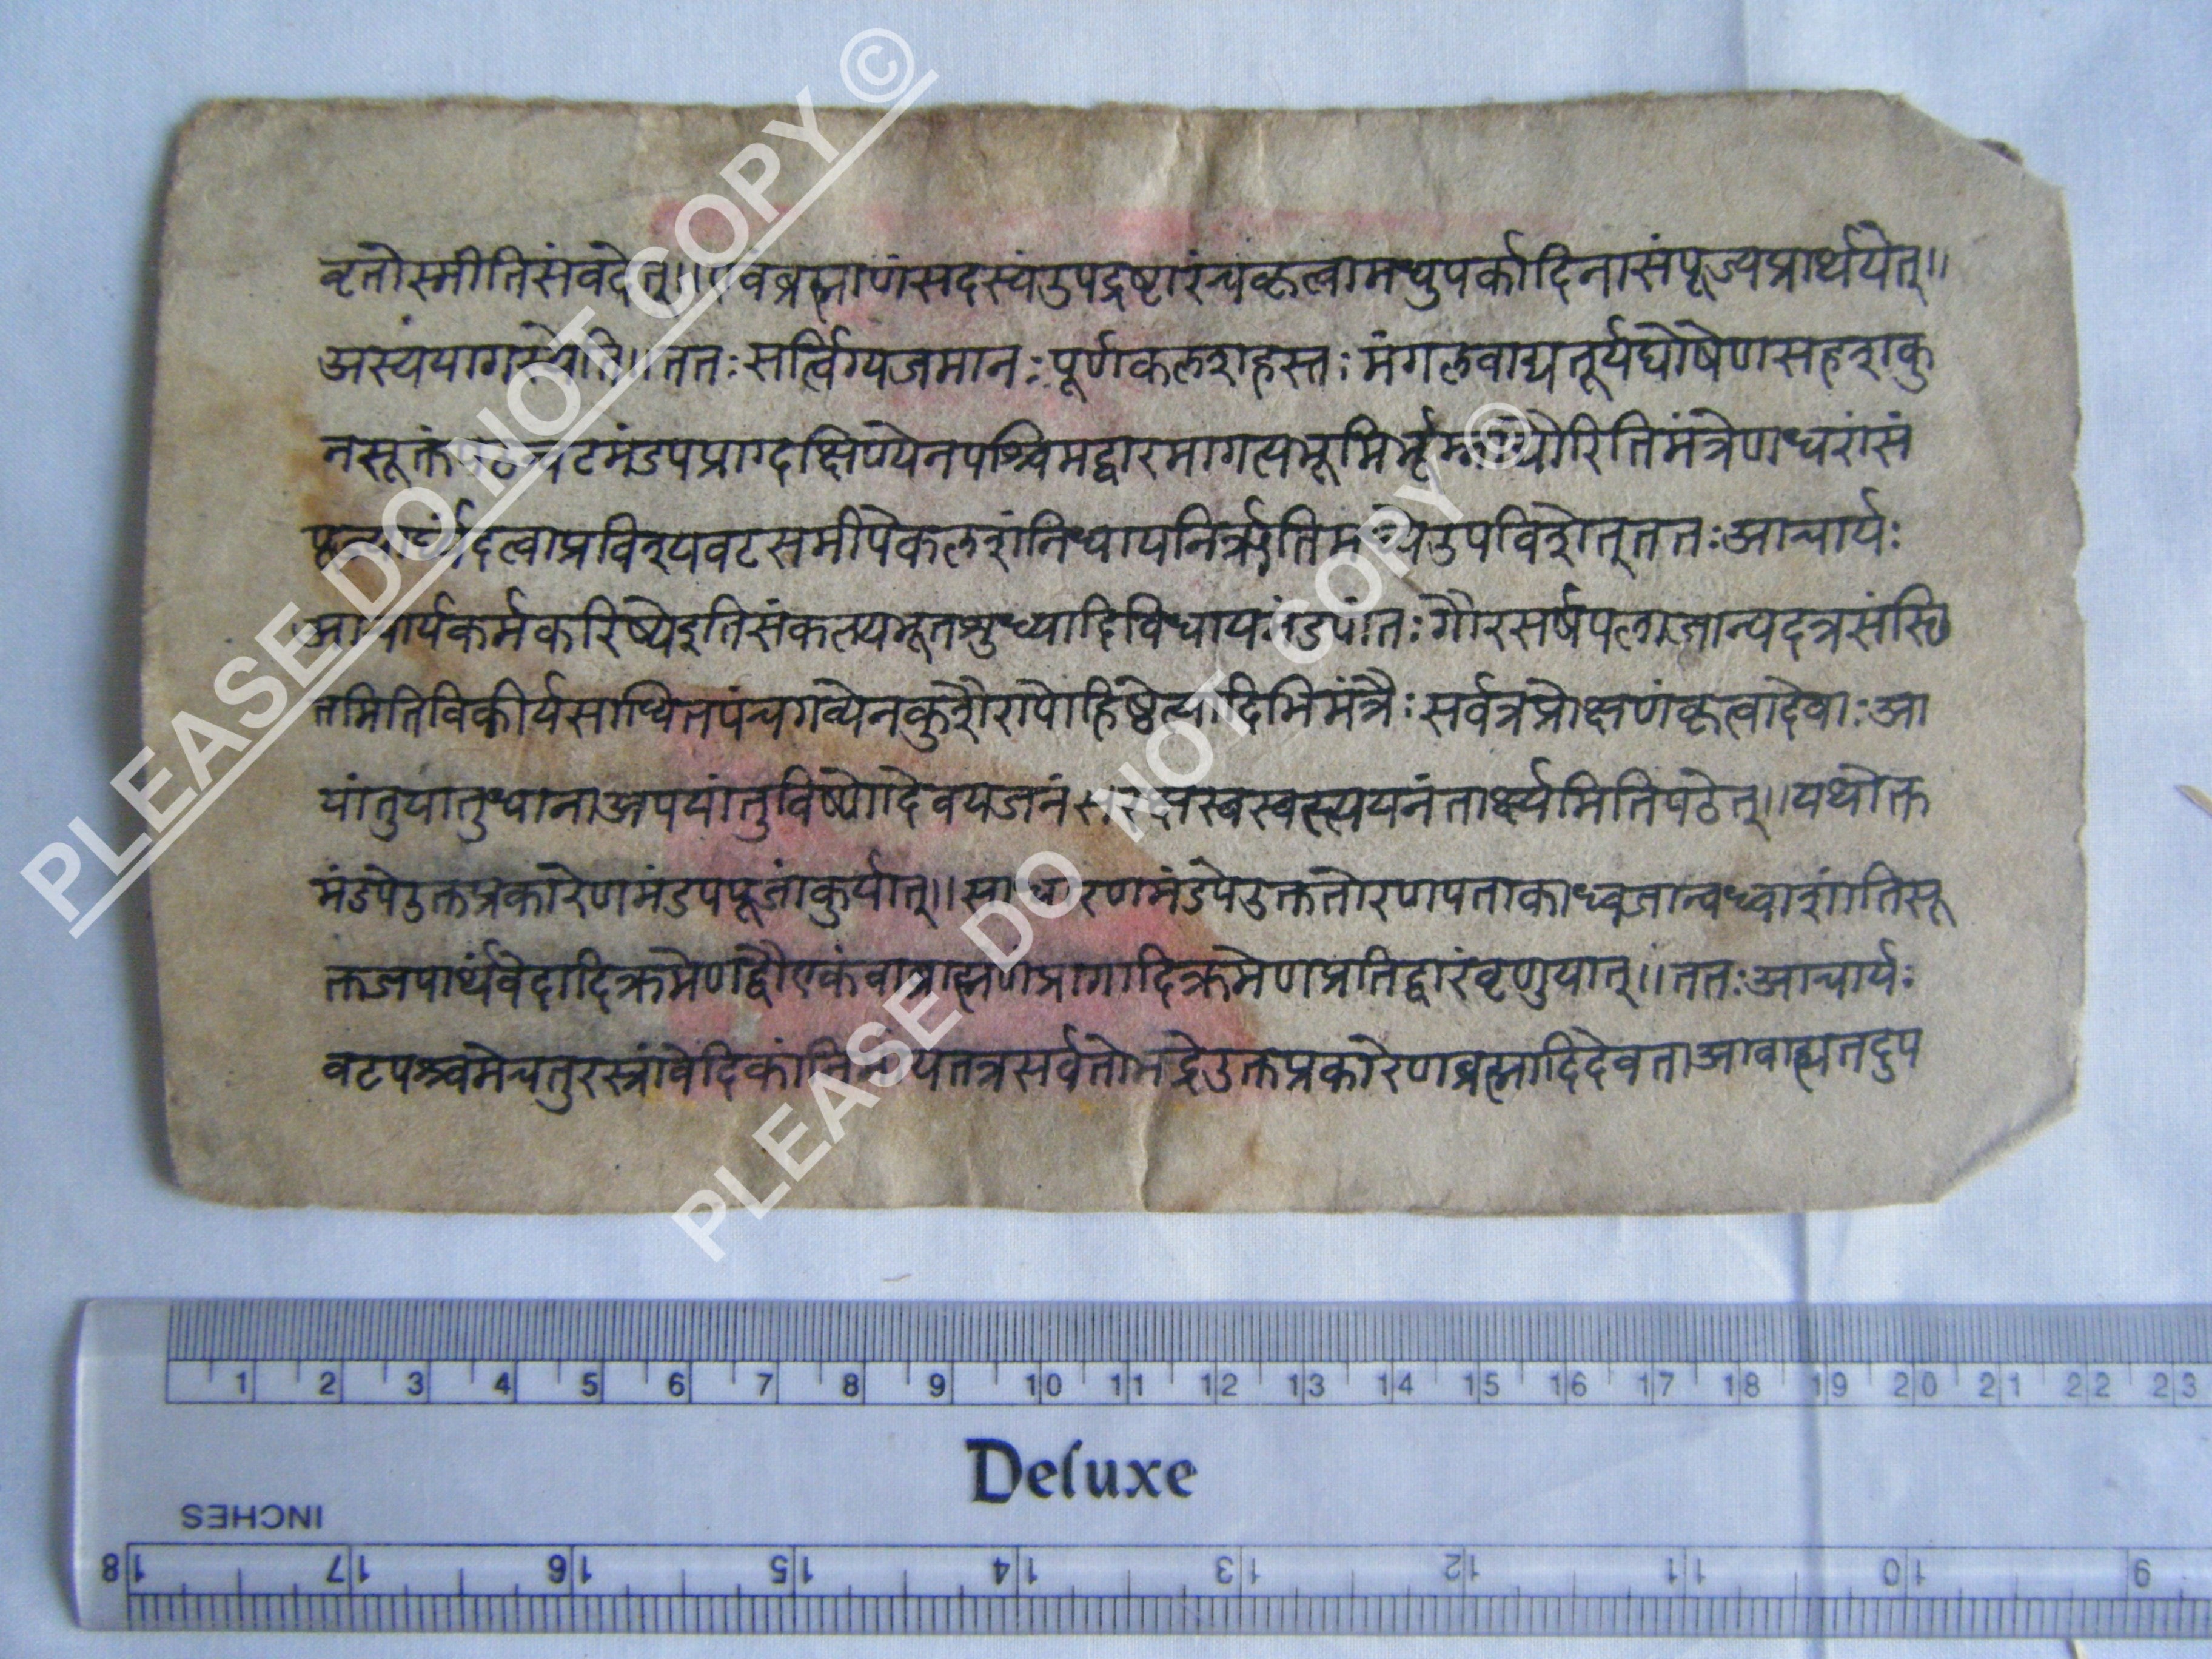 वृतोस्मीतिसंवदेत्॥एवंब्रह्माणंसदस्यंउपद्रष्टारंचवृत्वामधुपर्कादिनासंपूज्यप्रार्थयेत्॥
अस्ययागस्येति॥ततःसर्त्विग्यजमानःपूर्णकलशहस्तःमंगलवाद्यतूर्यघोषेणसहशकु
नसूक्तं वटमंडपप्राग्दक्षिण्येनपश्चिमद्वारमागत्यभूमिर्भूम्नाद्यौरितिमंत्रेणधरांसं
दत्वाप्रविश्यवटसमीपेकलशंनिधायनिर्ऋति उपविशेत्ततःआचार्यः
आचार्यकर्मकरिष्येइतिसंकल्प्यभूतशुध्यादिविधायमंडपांतःगौरसर्षपलाजान्यदत्रसंस्थि
तमितिविकीर्यसाधितपंचगव्येनकुशैरापोहिष्ठेत्यादिभिमंत्रैःसर्वत्रप्रोक्षणंकृत्वादेवाःआ
यांतुयातुधानाअपयांतुविष्णोदेवयजनं स्वस्वस्त्ययनंतार्क्ष्यमितिपठेत्॥यथोक्त
मंडपेउक्तप्रकारेणमंडपपूजांकुर्यात्॥साधारणमंडपेउक्ततोरणपताकाध्वजान्बध्वाशांतिसू
क्तजपार्थंवेदादिक्रमेणद्वौएकंवाब्राह्मणंप्रागादिक्रमेणप्रतिद्वारंवृणुयात्॥ततःआचार्यः
वटपश्चमेचतुरस्रांवेदिकांनिर्मायतत्रसर्वतोभद्रेउक्तप्रकारेणब्रह्मादिदेवताआवाह्यतदुप
PLEASE DO NOT COPY ©
PLEASE DO NOT COPY ©
1 2 3 4 5 6 7 8 9 10 11 12 13 14 15 16 17 18 19 20 21 22 23
Deluxe
INCHES
18 17 16 15 14 13 12 11 10 9